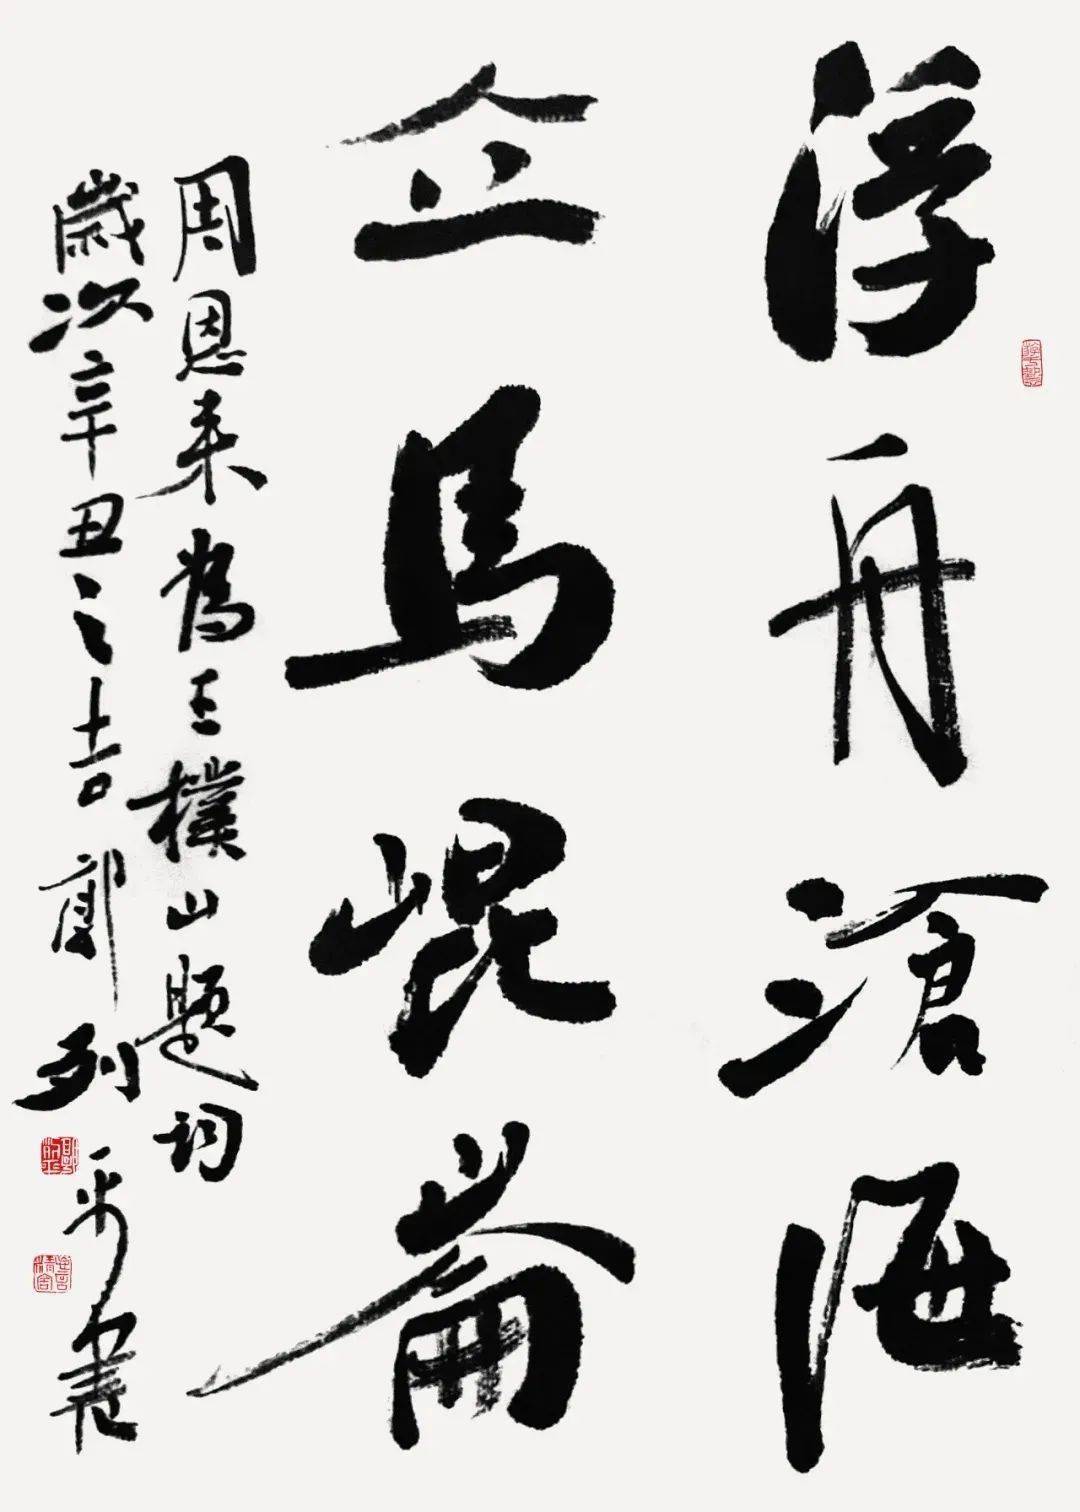 浮舟滄海
立馬崐崙
周恩来為王樸山題詞
歲次辛丑之吉郭列平書